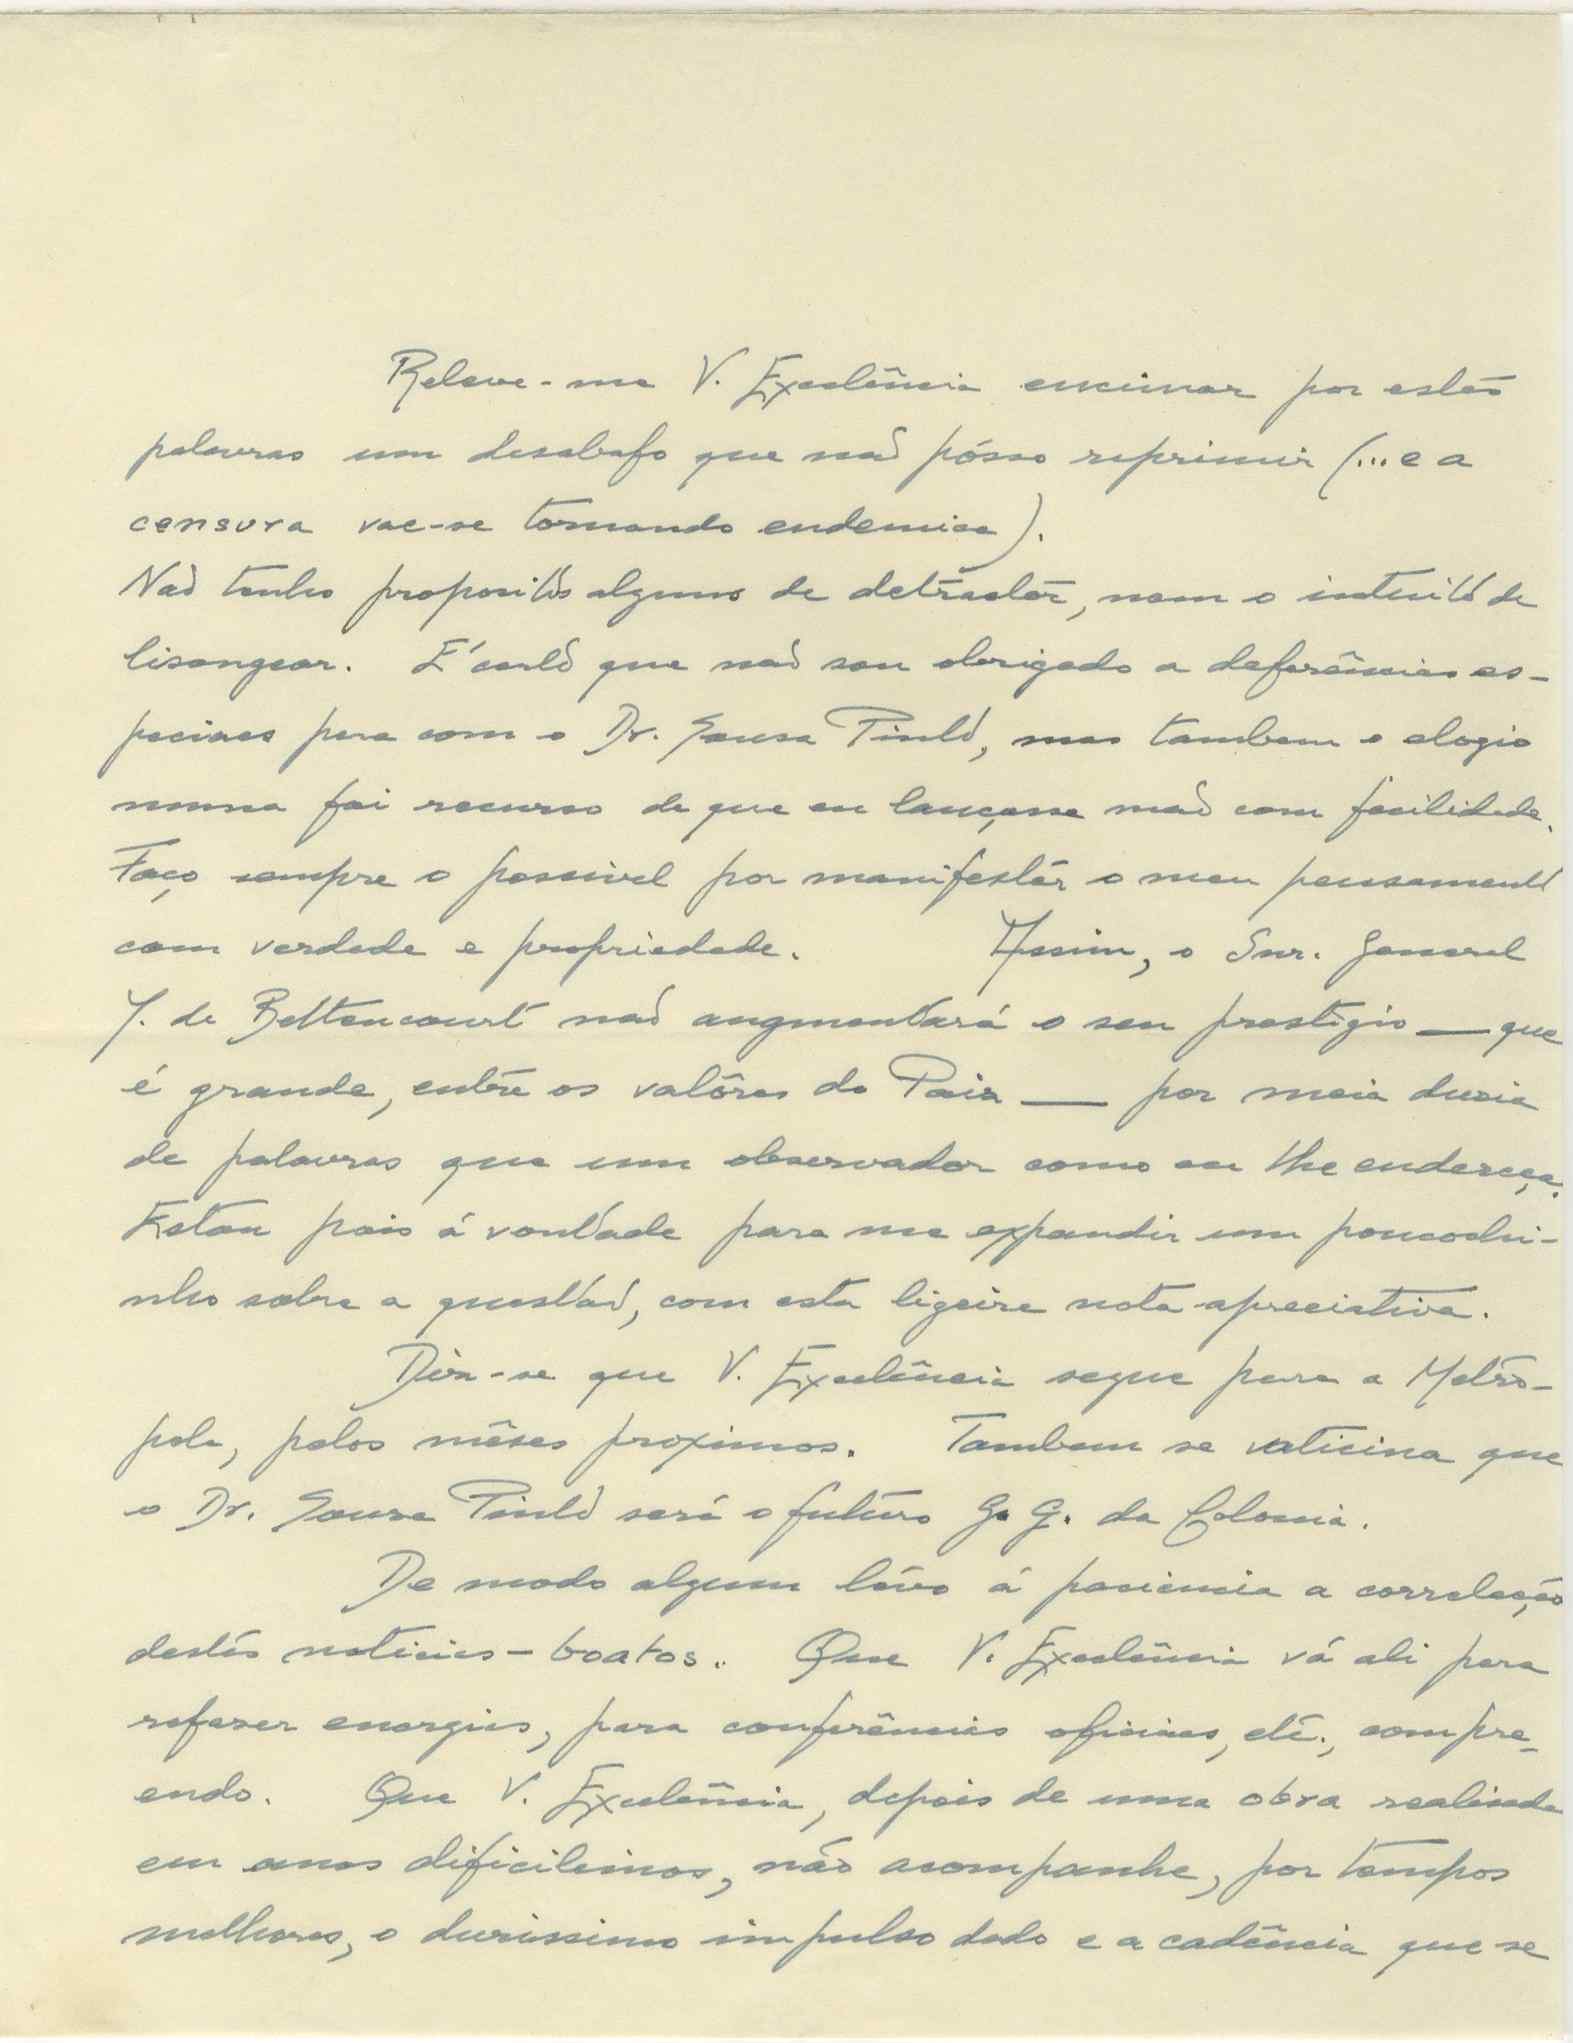 Releve-me V. Excelência encimar por estas
palavras um desabafo que não pósso reprimir (... e a
censura vae-se tornando endemica).
Não tenho propositos alguns de detractôr, nem o intuito de
lisongear. É certo que não sou obrigado a deferências es-
peciaes para com o Dr. Sousa Pinto, mas tambem o elogio
nunca foi recurso de que eu lançasse mão com facilidade.
Faço sempre o possivel por manifestár o meu pensamento
com verdade e propriedade. Assim, o Snr. General
T. de Bettencourt não augmentará o seu prestigio — que
é grande, entre os valôres do Paiz — por meia duzia
de palavras que um observador como eu lhe endereça.
Estou pois á vontade para me expandir um poucochi-
nho sobre a questão, com esta ligeira nota apreciativa.
Diz-se que V. Excelência segue para a Metró-
pole, pelos mêses proximos. Tambem se vaticina que
o Dr. Sousa Pinto será o futuro G. G. da Colonia.
De modo algum lévo á paciencia a correlação
destas noticias-boatos. Que V. Excelência vá ali para
refazer energias, para conferências oficiaes, etc., compre-
endo. Que V. Excelência, depois de uma obra realisada
em anos dificilimos, não acompanhe, por tempos
melhores, o durissimo impulso dado e a cadência que se